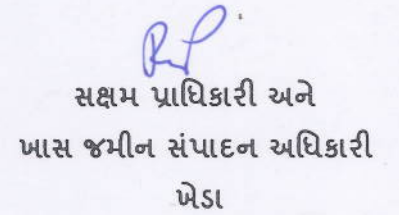 સક્ષમ પ્રાધિકારી અને
ખાસ જમીન સંપાદન અધિકારી
ખેડા